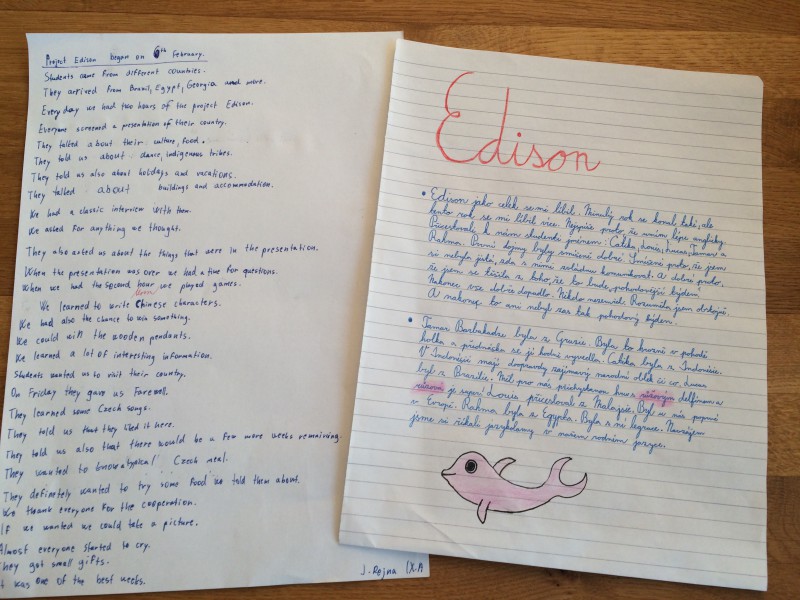 Project Edison began on 6th February.
Students came from different countries.
They arrived from Brasil, Egypt, Georgia and more.
Everyday we had two hours of the project Edison.
Everyone screened a presentation of their country.
They talked about their culture, food.
They told us about dance, indigenous tribes.
They told us also about holidays and vacations.
They talked about buildings and accommodation.
We had a classic interview with them.
We asked for anything we thought.
They also acted us about the things that were in the presentation.
When the presentation was over we had a time for questions.
When we had the second hour we played games.
We learned to write Chinese characters.
We had also the chance to win something.
We could win the wooden pendants.
We learned a lot of interesting information.
Students wanted us to visit their country.
On Friday they gave us Farewell.
They learned some Czech songs.
They told us that they liked it here.
They told us also that there would be a few more weeks remaining.
They wanted to know a typical Czech meal.
They definetely wanted to try some food we told them about.
We thank everyone for the cooperation.
If we wanted we could take a picture.
Almost everyone started to cry.
They got small gifts.
It was one of the best weeks.
J. Rojna IX.A
Edison
• Edison jako celek se mi líbil. Minulý rok se konal také, ale
tento rok se mi líbil více. Nejspíše proto, že umím lépe anglicky.
Přicestovali k nám studenti jménem: Cahika, Louis, Lucas, Tamar a
Rahma. První dojmy byly smíšené dobré. Smíšené proto, že jsem
si nebyla jistá, zda s nimi zvládnu komunikovat. A dobré proto,
že jsem se těšila z toho, že to bude pohodovější týden.
Nakonec vše dobře dopadlo. Nikdo nezemřel. Rozuměla jsem dobře.
A nakonec to ani nebyl zas tak pohodový týden.
• Tamar Barbakadze byla z Gruzie. Byla to hrozně v pohodě
holka a přednáška se jí hodně vyvedla. Cahika byla z Indonésie.
V Indonésii mají doopravdy zajímavý národní oblek či co. Lucas
byl z Brazílie. Měl pro nás přichystanou hru s růžovým delfínem a
růžová je super. Louis přicestoval z Malajsie. Byl u nás poprvé
v Evropě. Rahma byla z Egypta. Byla s ní legrace. Navzájem
jsme si říkali jazykolamy v našem rodném jazyce.